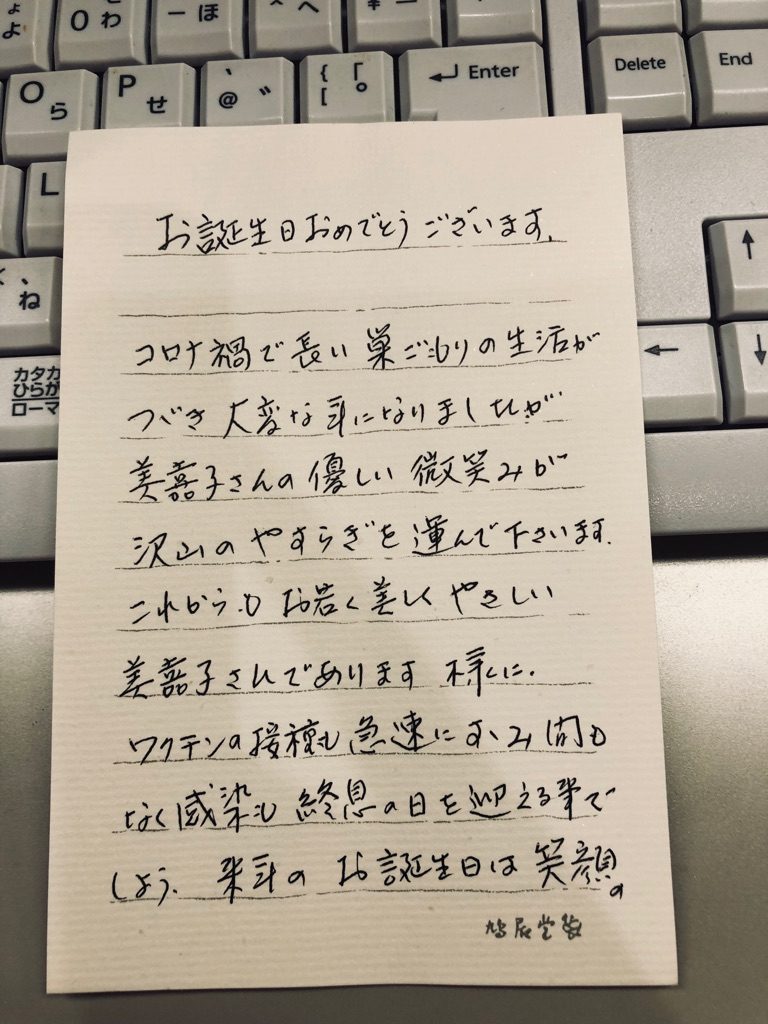 ょ
よ
0 わ
- ほ
^ へ
¥ ー
O ら
P せ
@ ゛
{ 「
[ ゜
Enter
Delete
End
L
ね
カタカ
ひらが
ローマ
↑
←
↓
お誕生日おめでとうございます.
コロナ禍で長い巣ごもりの生活が
つづき大変な年になりましたが
美嘉子さんの優しい微笑みが
沢山のやすらぎを運んで下さいます.
これからもお若く美しくやさしい
美嘉子さんであります様に.
ワクチンの接種も急速にすゝみ間も
なく感染も終息の日を迎える事で
しょう. 来年のお誕生日は笑顔の
鳩居堂製